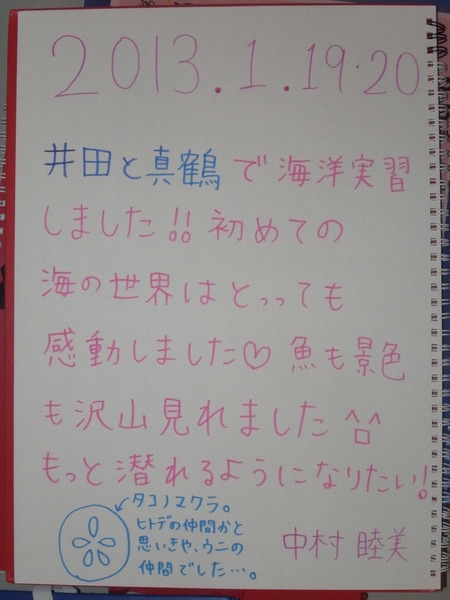 2013.1.19.20
井田と真鶴で海洋実習
しました!!初めての
海の世界はとっっても
感動しました♡魚も景色
も沢山見れました^□^
もっと潜れるようになりたい!
←タコノマクラ。
ヒトデの仲間かと
思いきや、ウニの
仲間でした…。
中村睦美